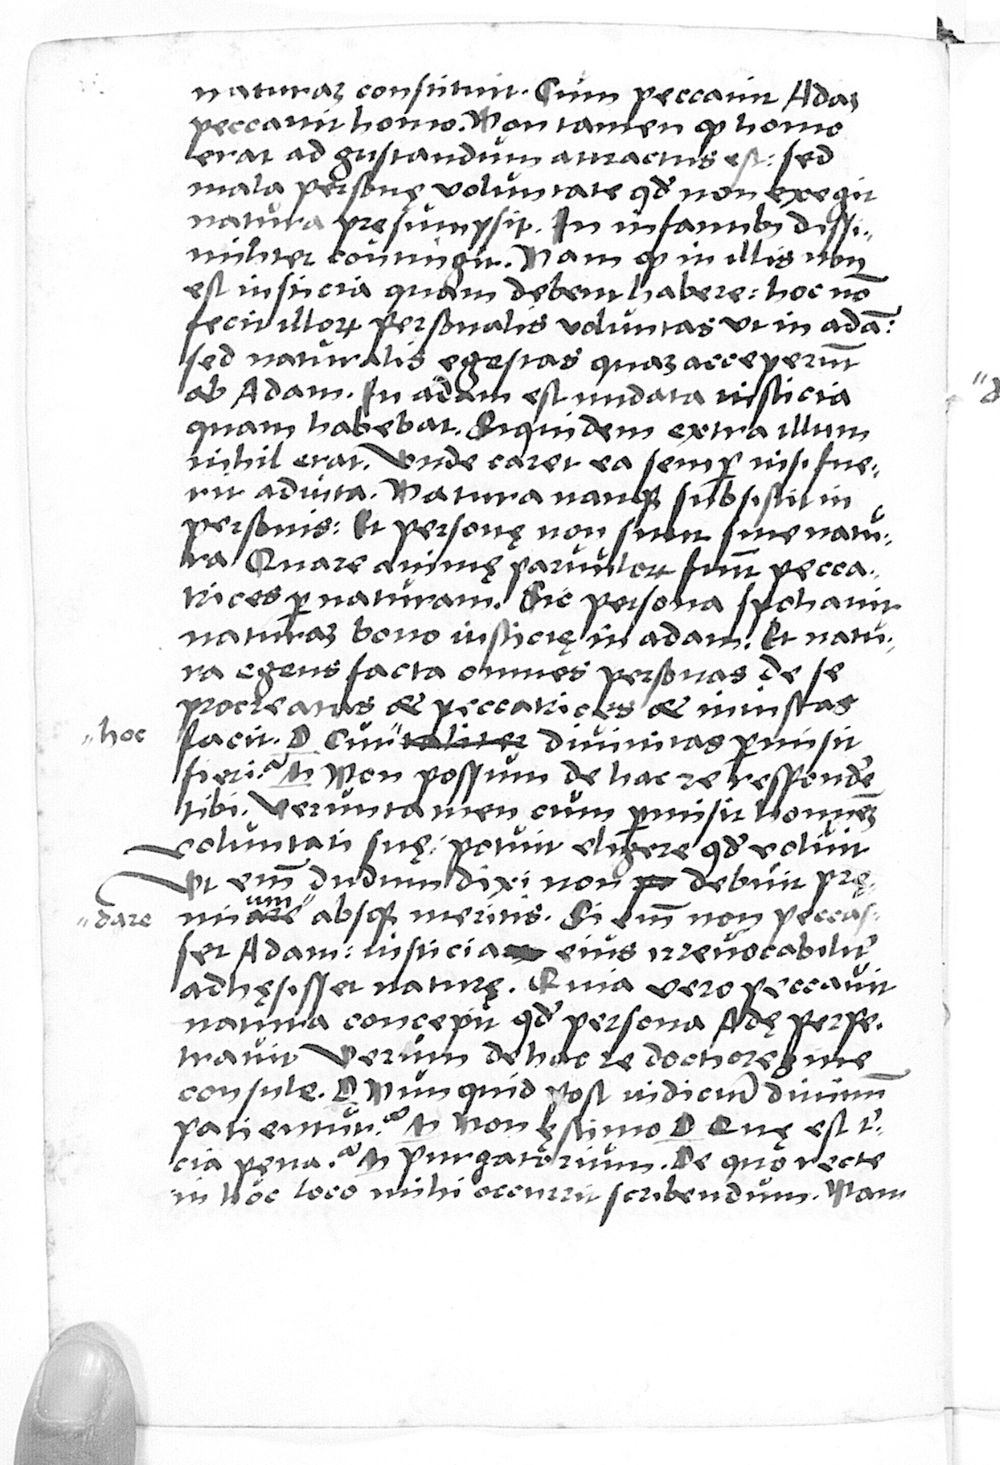 naturaʒ constituit. Cum peccauit Adaʒ
peccauit homo. Non tamen ꝙ homo
erat ad gustandum attractus est: sed
mala personę voluntate qđ non exegit
natura pręsumpsit. In infantibꝫ dissi-
militer contingit. Nam ꝙ in illis non
est iusticia quam debent habere: hoc nō
fecit illoꝝ personalis voluntas vt in adā:
sed naturalis egestas quaʒ acceperūt
ab Adam. In adam est nudata iusticia
quam habebat. Siquidem extra illum
nihil erat. Vnde caret ea semꝑ nisi fue-
rit adiuta. Natura namqꝫ subsistit in
personis: Et personę non sunt sine natu-
ra Quare animę paruuloꝝ sunt pecca-
trices ꝑ naturam. Sic persona spoliauit
naturaʒ bono iusticię in adam. Et natu-
ra egens facta omnes personas de se
procreatas & peccatrices & iniustas
"hoc facit. D Cur " taliter diuinitas ꝑmisit
fieri? N Non possum de hac re respondē
tibi. Veruntamen cum ꝑmisit hominēʒ
voluntati suę: potuit eligere qđ voluit
Vt em̄ dudum dixi non debuit prę-
um
"dare miare absqꝫ meritis. Si em̄ non peccas-
set Adam: iusticia eius irreuocabilit̄
adhęsisset naturę. Quia vero peccauit
natura concepit qđ persona Adę perpe-
trauit Verum de hac re doctiores me
consule. D Nunquid post iudiciū diuinū
patientur? N Non ęstimo D Quę est t̄-
cia pęna? N Purgatorium. De quo recte
in hoc loco mihi occurrit scribendum. Nam